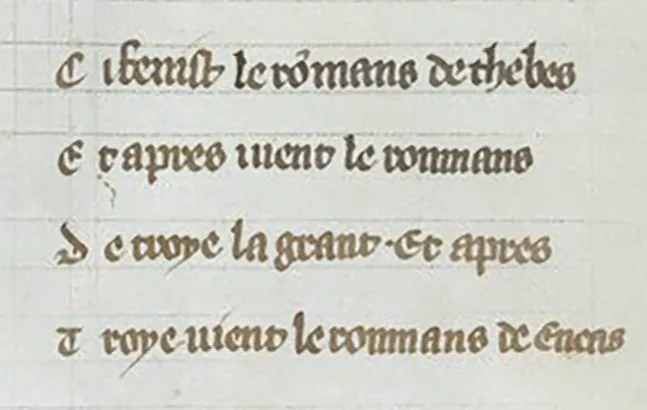 Ci fenist le rõmans de thebes
Et apres uient le roumans
De troye la grant · Et apres
Troye uient le roumans de Eneas